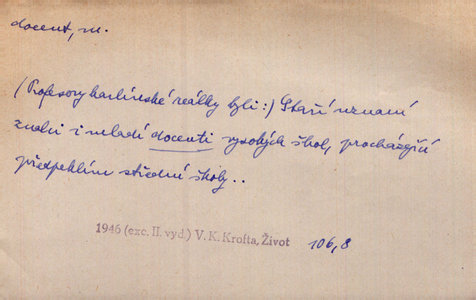 docent, m.
(Profesory karlínské reálky byli:) Staří uznaní
znalci i mladí docenti vysokých škol, procházející
předpeklím střední školy..
1946 (exc. II. vyd.) V. K. Krofta, Život 106,8